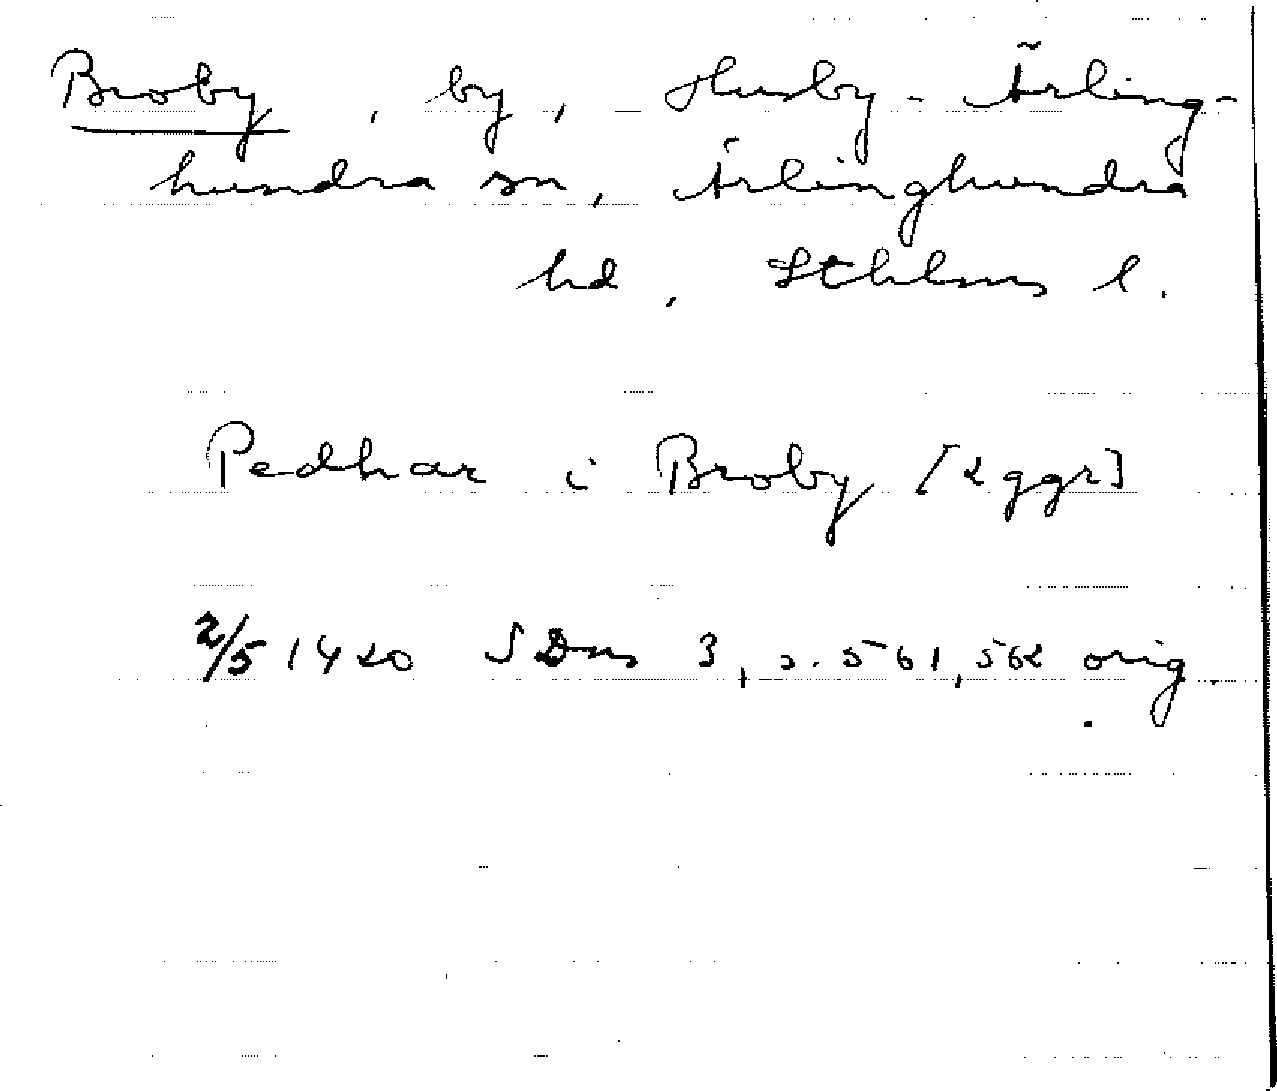 Broby, by, Husby-Ärling-
hundra sn, Ärlinghundra
hd, Sthlms l.
Pedhar i Broby [2 ggr]
2/5 1420 SDns 3, s. 561, 562 orig.